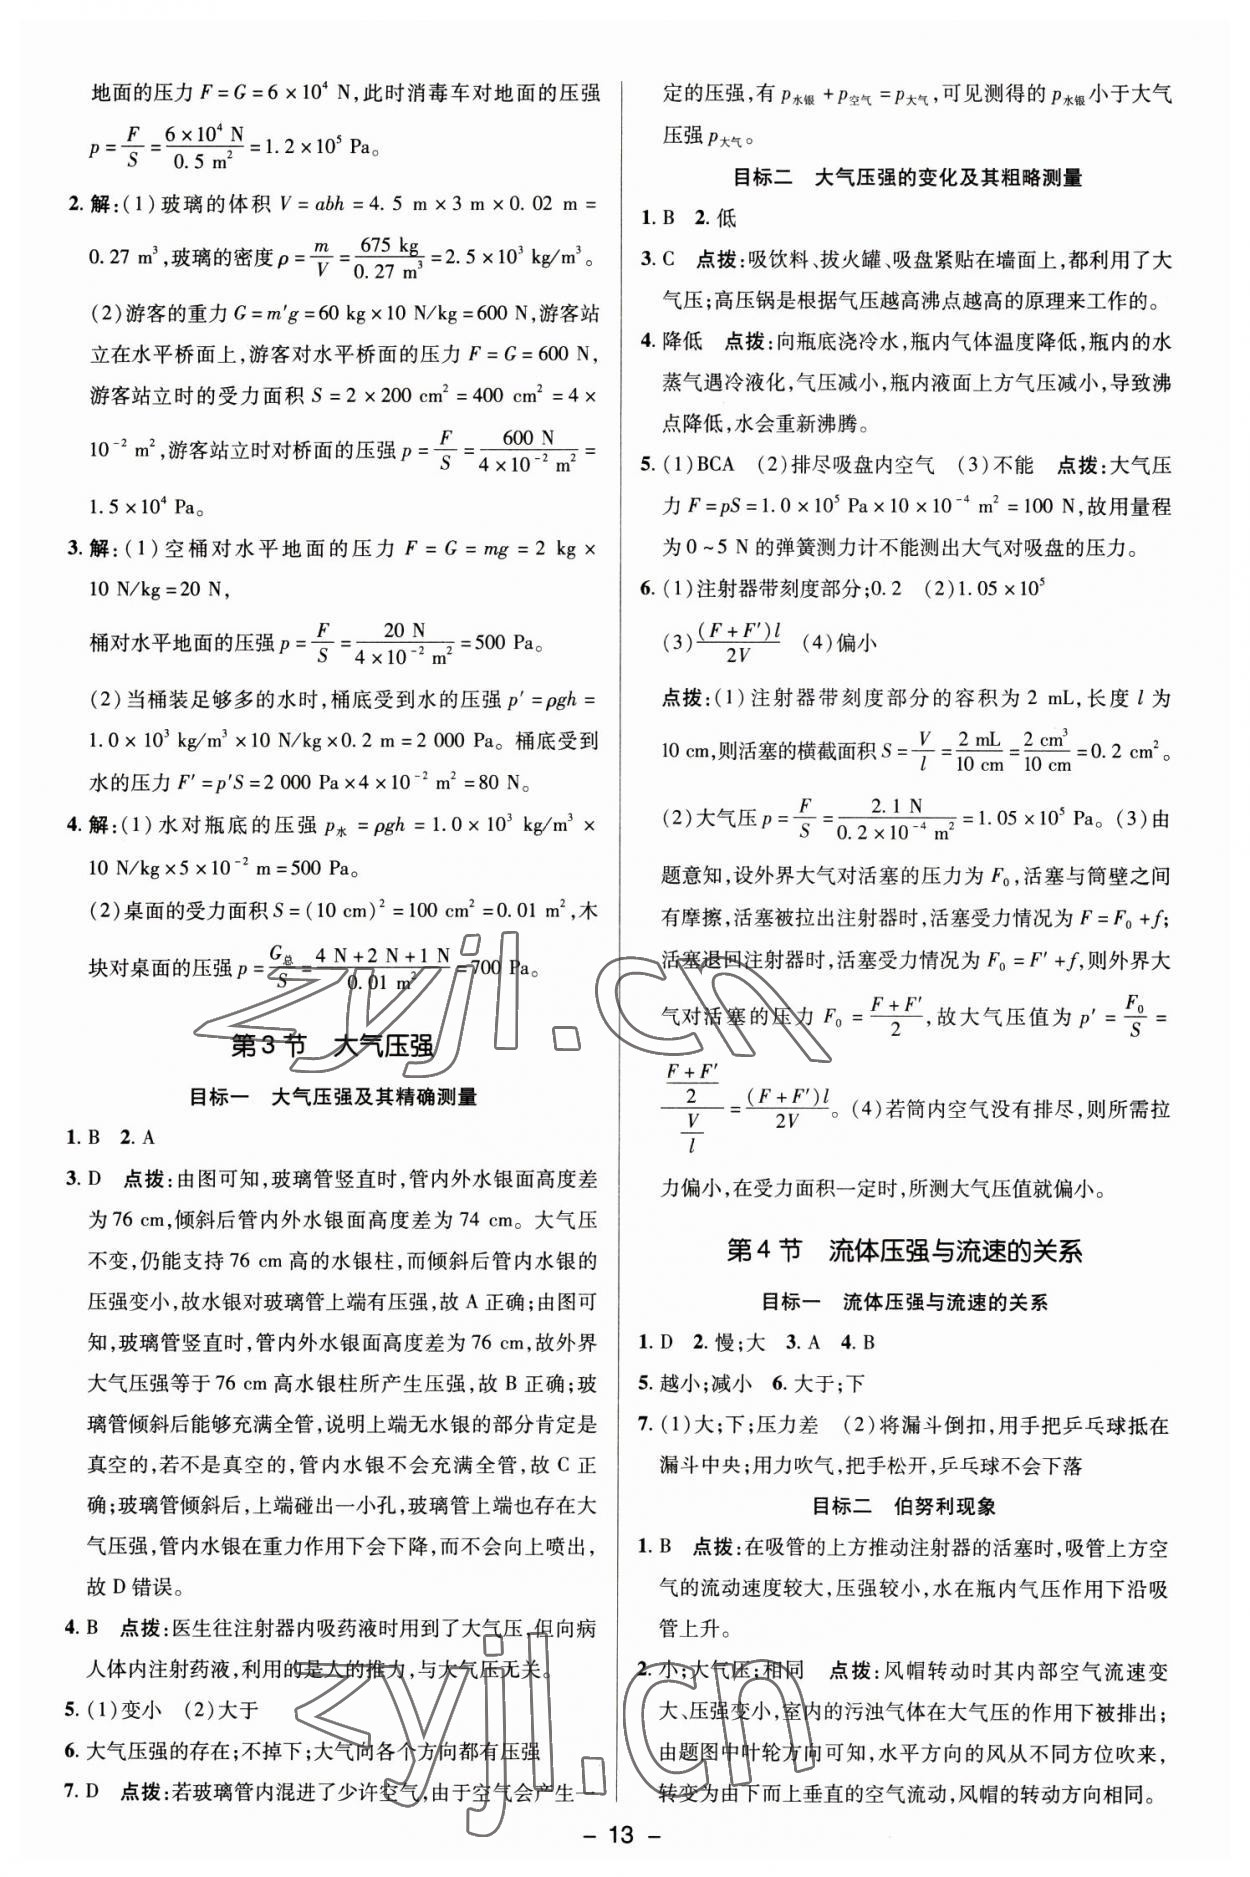 地面的压力 F=G=6×10⁴ N,此时消毒车对地面的压强
p=F/S=6×10⁴ N/0.5 m²=1.2×10⁵ Pa。
2.解:(1)玻璃的体积 V=abh=4.5 m×3 m×0.02 m=
0.27 m³,玻璃的密度ρ=m/V=675 kg/0.27 m³=2.5×10³ kg/m³。
(2)游客的重力 G=m′g=60 kg×10 N/kg=600 N,游客站
立在水平桥面上,游客对水平桥面的压力 F=G=600 N,
游客站立时的受力面积 S=2×200 cm²=400 cm²=4×
10⁻² m²,游客站立时对桥面的压强 p=F/S=600 N/4×10⁻² m²=
1.5×10⁴ Pa。
3.解:(1)空桶对水平地面的压力 F=G=mg=2 kg×
10 N/kg=20 N,
桶对水平地面的压强 p=F/S=20 N/4×10⁻² m²=500 Pa。
(2)当桶装足够多的水时,桶底受到水的压强 p′=ρgh=
1.0×10³ kg/m³×10 N/kg×0.2 m=2 000 Pa。桶底受到
水的压力 F′=p′S=2 000 Pa×4×10⁻² m²=80 N。
4.解:(1)水对瓶底的压强 p水=ρgh=1.0×10³ kg/m³×
10 N/kg×5×10⁻² m=500 Pa。
(2)桌面的受力面积 S=(10 cm)²=100 cm²=0.01 m²,木
块对桌面的压强 p=G总/S=4 N+2 N+1 N/0.01 m²=700 Pa。
第3节 大气压强
目标一 大气压强及其精确测量
1. B 2. A
3. D 点拨:由图可知,玻璃管竖直时,管内外水银面高度差
为76 cm,倾斜后管内外水银面高度差为74 cm。大气压
不变,仍能支持76 cm高的水银柱,而倾斜后管内水银的
压强变小,故水银对玻璃管上端有压强,故A正确;由图可
知,玻璃管竖直时,管内外水银面高度差为76 cm,故外界
大气压强等于76 cm高水银柱所产生压强,故B正确;玻
璃管倾斜后能够充满全管,说明上端无水银的部分肯定是
真空的,若不是真空的,管内水银不会充满全管,故C正
确;玻璃管倾斜后,上端碰出一小孔,玻璃管上端也存在大
气压强,管内水银在重力作用下会下降,而不会向上喷出,
故D错误。
4. B 点拨:医生往注射器内吸药液时用到了大气压,但向病
人体内注射药液,利用的是人的推力,与大气压无关。
5.(1)变小 (2)大于
6.大气压强的存在;不掉下;大气向各个方向都有压强
7. D 点拨:若玻璃管内混进了少许空气,由于空气会产生一
定的压强,有 p水银+p空气=p大气,可见测得的 p水银小于大气
压强 p大气。
目标二 大气压强的变化及其粗略测量
1. B 2.低
3. C 点拨:吸饮料、拔火罐、吸盘紧贴在墙面上,都利用了大
气压;高压锅是根据气压越高沸点越高的原理来工作的。
4.降低 点拨:向瓶底浇冷水,瓶内气体温度降低,瓶内的水
蒸气遇冷液化,气压减小,瓶内液面上方气压减小,导致沸
点降低,水会重新沸腾。
5.(1)BCA (2)排尽吸盘内空气 (3)不能 点拨:大气压
力 F=pS=1.0×10⁵ Pa×10×10⁻⁴ m²=100 N,故用量程
为0~5 N的弹簧测力计不能测出大气对吸盘的压力。
6.(1)注射器带刻度部分;0.2 (2)1.05×10⁵
(3)(F+F′)l/2V (4)偏小
点拨:(1)注射器带刻度部分的容积为2 mL,长度 l 为
10 cm,则活塞的横截面积 S=V/l=2 mL/10 cm=2 cm³/10 cm=0.2 cm²。
(2)大气压 p=F/S=2.1 N/0.2×10⁻⁴ m²=1.05×10⁵ Pa。(3)由
题意知,设外界大气对活塞的压力为 F₀,活塞与筒壁之间
有摩擦,活塞被拉出注射器时,活塞受力情况为 F=F₀+f;
活塞退回注射器时,活塞受力情况为 F₀=F′+f,则外界大
气对活塞的压力 F₀=F+F′/2,故大气压值为 p′=F₀/S=
(F+F′/2)/(V/l)=(F+F′)l/2V。(4)若筒内空气没有排尽,则所需拉
力偏小,在受力面积一定时,所测大气压值就偏小。
第4节 流体压强与流速的关系
目标一 流体压强与流速的关系
1. D 2.慢;大 3. A 4. B
5.越小;减小 6.大于;下
7.(1)大;下;压力差 (2)将漏斗倒扣,用手把乒乓球抵在
漏斗中央;用力吹气,把手松开,乒乓球不会下落
目标二 伯努利现象
1. B 点拨:在吸管的上方推动注射器的活塞时,吸管上方空
气的流动速度较大,压强较小,水在瓶内气压作用下沿吸
管上升。
2.小;大气压;相同 点拨:风帽转动时其内部空气流速变
大、压强变小,室内的污浊气体在大气压的作用下被排出;
由题图中叶轮方向可知,水平方向的风从不同方位吹来,
转变为由下而上垂直的空气流动,风帽的转动方向相同。
- 13 -
zyjl.cn
zyjl.cn